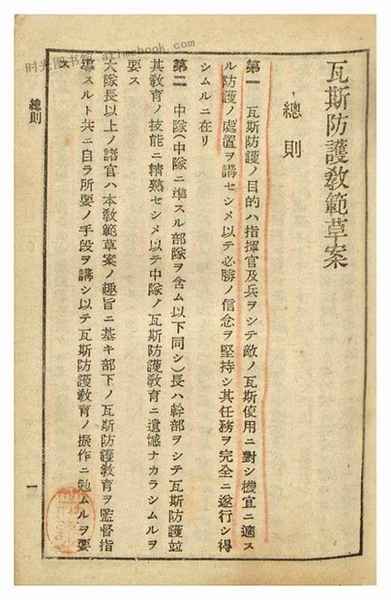 瓦斯防護教範草案
總則
第一 瓦斯防護ノ目的ハ指揮官及兵ヲシテ敵ノ瓦斯使用ニ對シ機宜ニ適ス
ル防護ノ處置ヲ講セシメ以テ必勝ノ信念ヲ堅持シ其任務ヲ完全ニ遂行シ得
シムルニ在リ
第二 中隊(中隊ニ準スル部隊ヲ含ム以下同シ)長ハ幹部ヲシテ瓦斯防護竝
其教育ノ技能ニ精熟セシメ以テ中隊ノ瓦斯防護教育ニ遺憾ナカラシムルヲ
要ス
大隊長以上ノ諸官ハ本教範草案ノ趣旨ニ基キ部下ノ瓦斯防護教育ヲ監督指
導スルト共ニ自ラ所要ノ手段ヲ講シ以テ瓦斯防護教育ノ振作ニ勉ムルヲ要
ス
總則
一